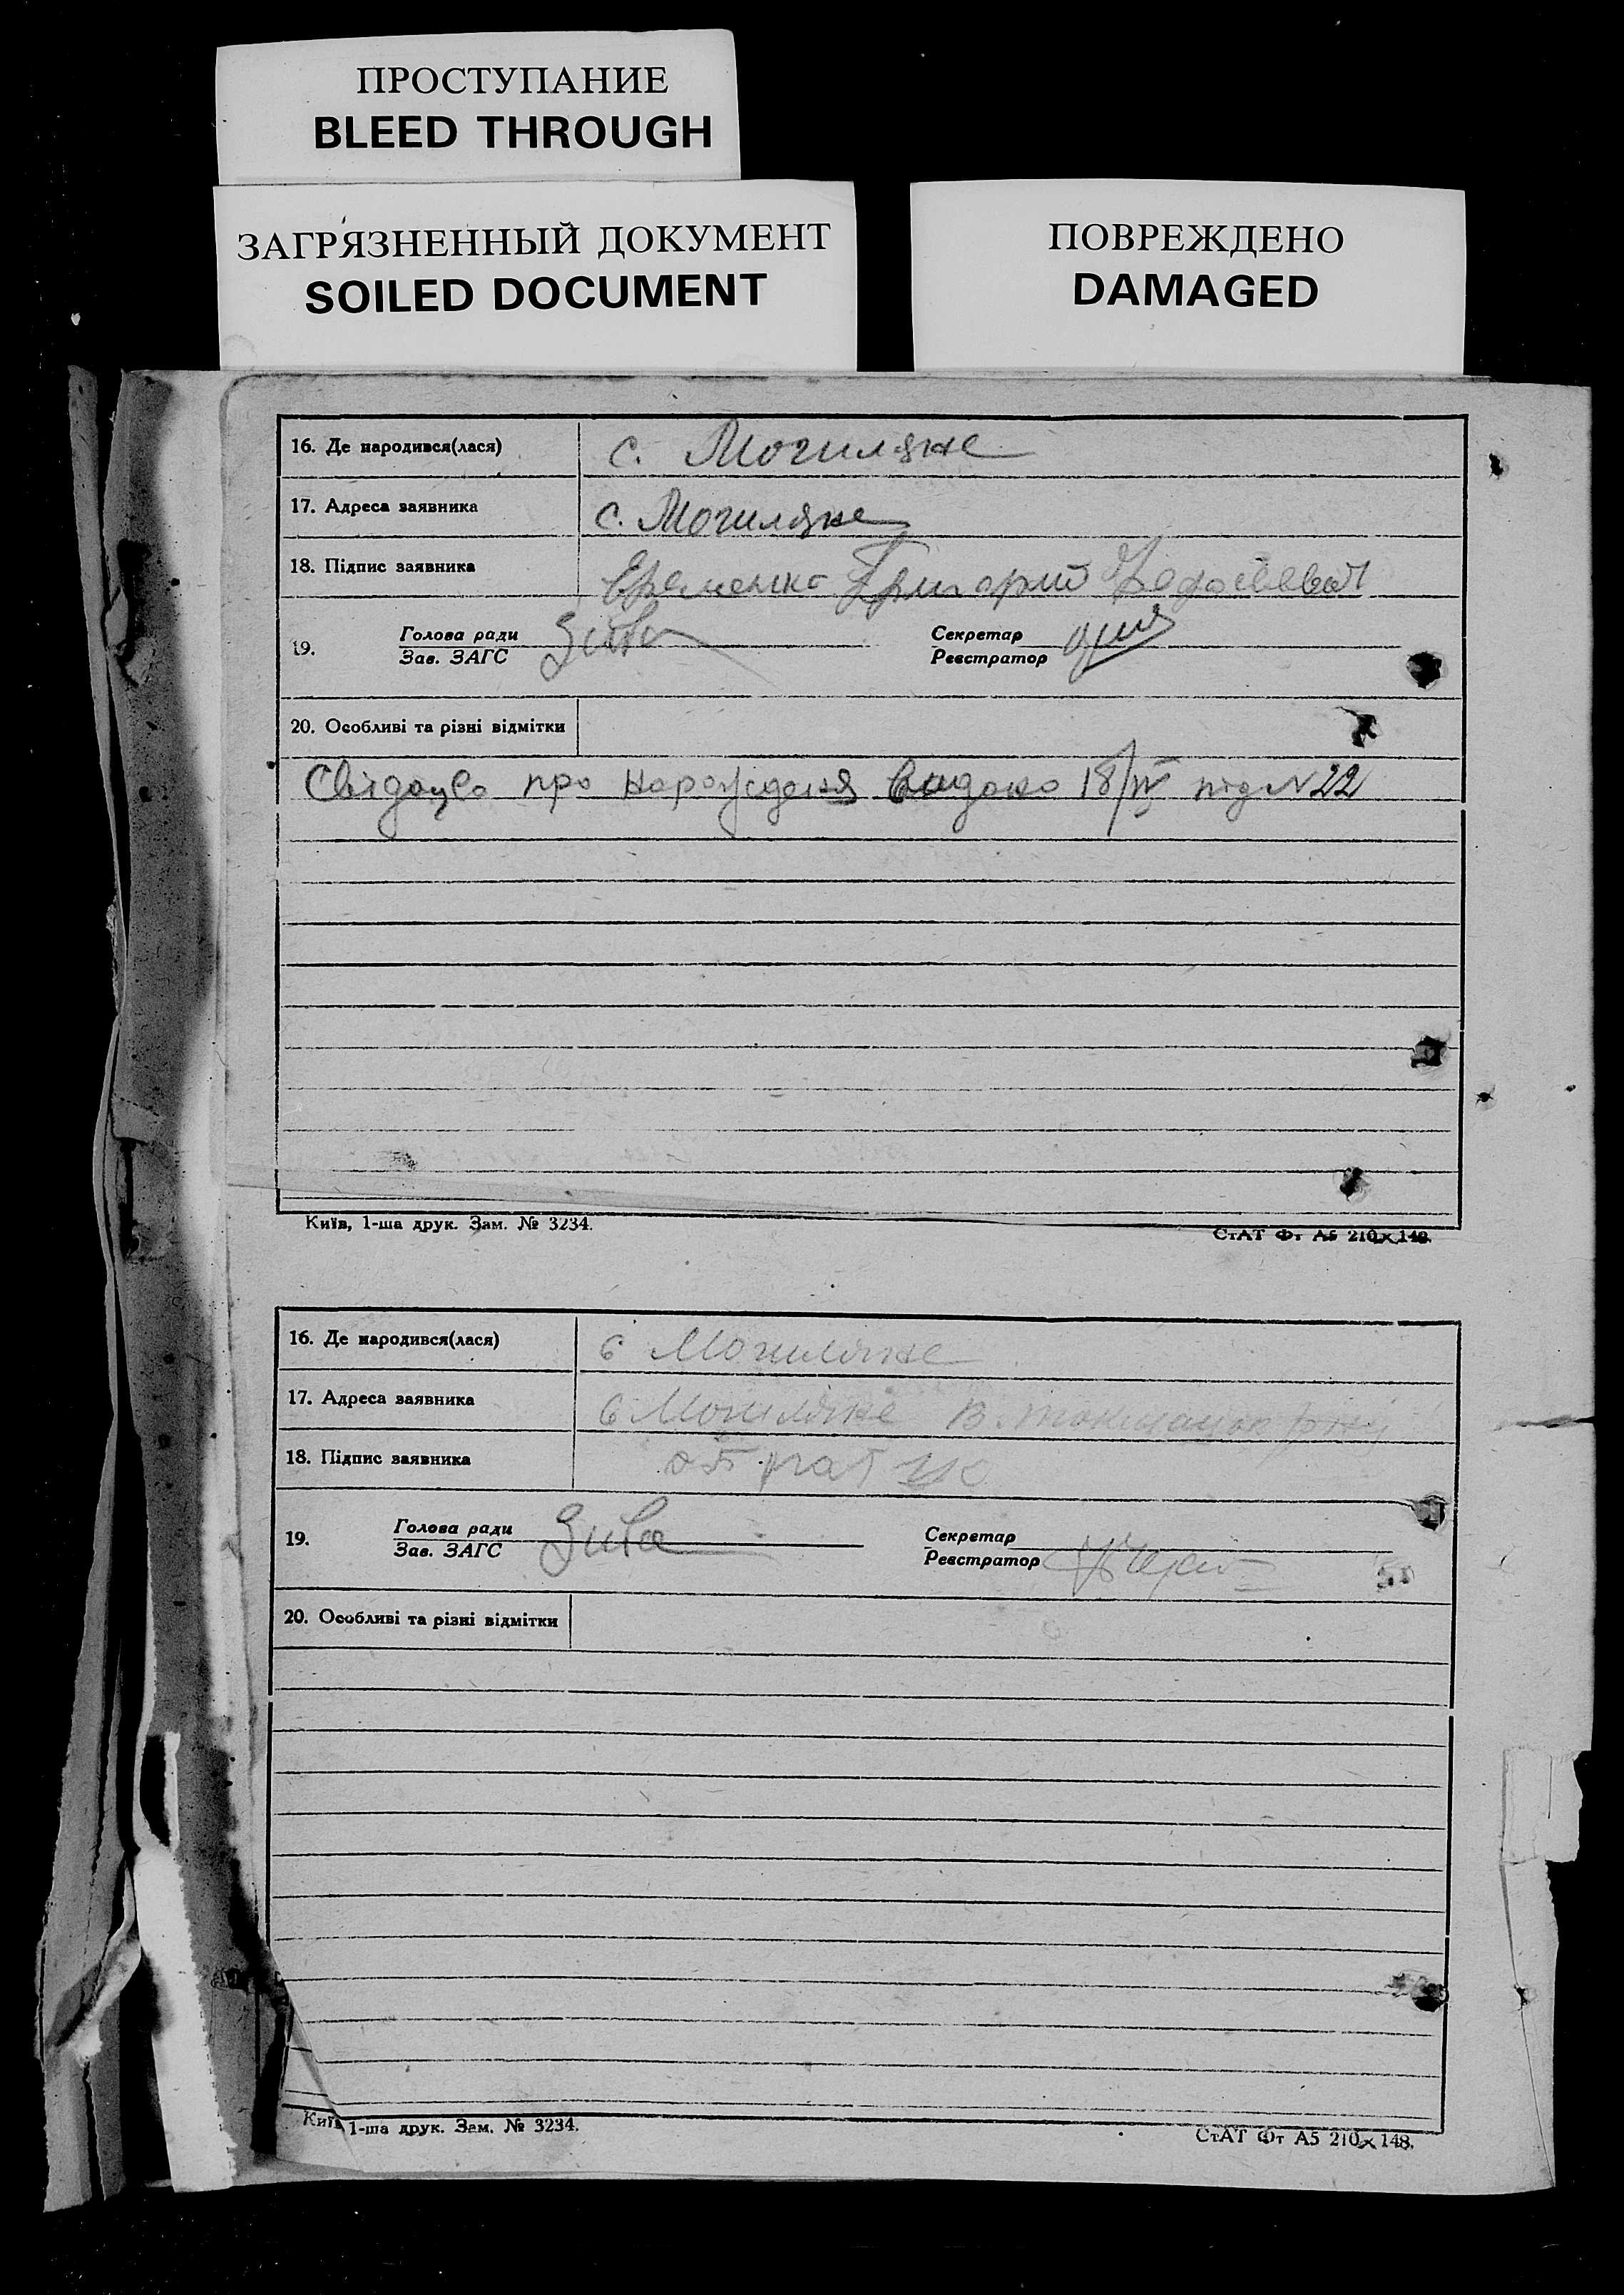 ПРОСТУПАНИЕ
BLEED THROUGH
ЗАГРЯЗНЕННЫЙ ДОКУМЕНТ
SOILED DOCUMENT
ПОВРЕЖДЕНО
DAMAGED
16. Де народився(лася) с. Могиляне
17. Адреса заявника с. Могиляне
18. Підпис заявника Еременко Григорий
19. Голова ради Секретар
Зав. ЗАГС Реєстратор
20. Особливі та різні відмітки
про видано 18/IV під N 22
Київ, 1-ша друк. Зам. № 3234.
СтАТ Фт А5 210×148.
16. Де народився(лася) с Могиляне
17. Адреса заявника с Могиляне В.
18. Підпис заявника
19. Голова ради Секретар
Зав. ЗАГС Реєстратор
20. Особливі та різні відмітки
Київ 1-ша друк. Зам. № 3234.
СтАТ Фт А5 210×148.